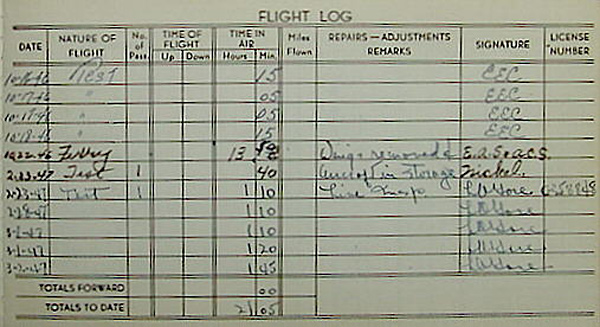 FLIGHT LOG
DATE NATURE OF FLIGHT No. of Pass. TIME OF FLIGHT Up Down TIME IN AIR Hours Min. Miles Flown REPAIRS — ADJUSTMENTS REMARKS SIGNATURE LICENSE NUMBER
Test 15 EEC
10-17-46 " 05 EEC
10-17-46 " 05 EEC
10-18-46 " 15 EEC
10-22-46 Ferry 13 Wings removed &
2-23-47 Test 1 40 aircraft in storage Nickel.
2-23-47 Test 1 1 10 Line Insp.
1 10
3-1-47 1 10
3-1-47 1 20
3-2-47 1 45
TOTALS FORWARD 00
TOTALS TO DATE 21 05